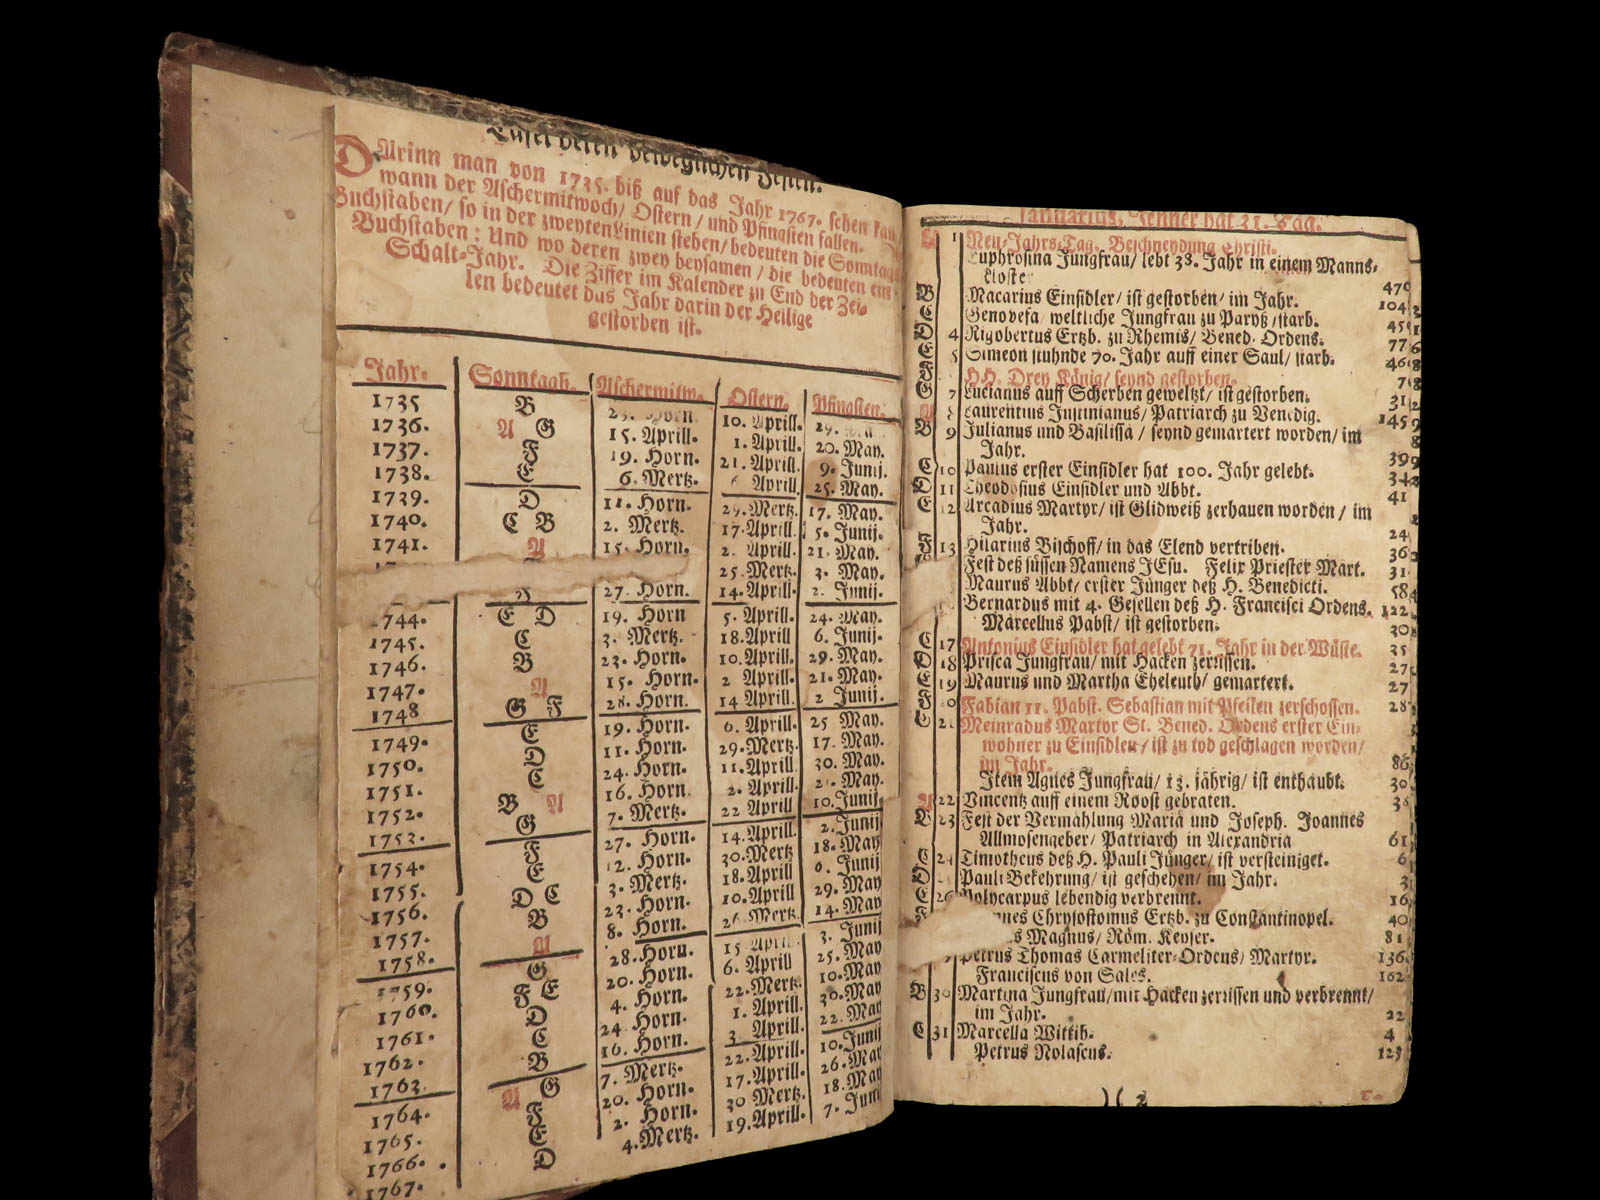 Tafel deren beweglichen Festen.
DArinn man von 1735. biß auf das Jahr 1767. sehen kan/
wann der Aschermitwoch/ Ostern/ und Pfingsten fallen.
Buchstaben/ so in der zweyten Linien stehen/ bedeuten die Sonntags
Buchstaben: Und wo deren zwey beysamen/ die bedeuten ein
Schalt-Jahr. Die Ziffer im Kalender zu End der Zei-
len bedeutet das Jahr darin der Heilige
gestorben ist.
Jahr. Sonntagb. Aschermitw. Ostern. Pfingsten.
1735 B 23. Horn. 10. Aprill. 29.
1736. A G 15. 1. Aprill. 20. May.
1737. F 19. Horn. 21. Aprill. 9. Junij.
1738. E 6. Mertz. 6 Aprill. 25. May.
1739. D 11. Horn. 29. Mertz. 17. May.
1740. C B 2. Mertz. 17. Aprill. 5. Junij.
1741. A 15. Horn. 2. Aprill. 21. May.
25. Mertz. 3. May.
27. Horn. 14. Aprill. 2. Junij.
744. E D 19. Horn 5. Aprill. 24. May.
1745. C 3. Mertz. 18. Aprill 6. Junij.
1746. B 23. Horn. 10. Aprill. 29. May.
1747. A 15. Horn. 2 Aprill. 21. May.
1748 G F 28. Horn. 14 Aprill. 2 Junij.
1749. E 19. Horn. 6. Aprill. 25 May.
1750. D 11. Horn. 29. Mertz. 17. May.
1751. C 24. Horn. 11. Aprill. 30. May.
1752. B A 16. Horn. 2. Aprill. 2. May.
1753. G 7. Mertz. 22 Aprill 10. Junij.
1754. F 27. Horn. 14. Aprill. 2. Junij
1755. E 12. Horn. 30. Mertz 18. May
1756. D C 3. Mertz. 18. Aprill 6. Junij
1757. B 23. Horn. 10. Aprill 29. May
1758. A 8. Horn. 26. Mertz. 14. May
1759. G 28. Horn. 15 Aprill 3. Junij
1760. F E 20. Horn. 6. Aprill 25. May
1761. D 4. Horn. 22. Mertz. 10. May
1762. C 24 Horn. 1. Aprill. 30. May
1763. B 16. Horn. 3 Aprill. 22. May
1764. A G 7. Mertz. 22. Aprill. 10. Junij
1765. F 20. Horn. 17. Aprill. 26. May
1766. E 2. Horn. 30 Mertz. 18. May
1767. D 4. Mertz. 19. Aprill. 7. Juni
Januarius, Jenner hat 31. Tag.
1 Neu-Jahrs-Tag. Beschneydung Christi.
Euphrosina Jungfrau/ lebt 38. Jahr in einem Manns-
Closte 470
B Macarius Einsidler/ ist gestorben/ im Jahr. 104
C Genovefa weltliche Jungfrau zu Paryß/ starb. 45
D 4 Rigobertus Ertzb. zu Rhemis/ Bened. Ordens. 77
E 5 Simeon stuhnde 70. Jahr auff einer Saul/ starb. 46
F HH. Drey König/ seynd gestorben. 7
G 7 Lucianus auff Scherben geweltzt/ ist gestorben. 31
A 8 Laurentius Justinianus/ Patriarch zu Venedig. 145
B 9 Julianus und Basilissa/ seynd gemartert worden/ im
Jahr. 399
C 10 Paulus erster Einsidler hat 100. Jahr gelebt. 34
D 11 Theodosius Einsidler und Abbt. 41
E 12 Arcadius Martyr/ ist Glidweiß zerhauen worden/ im
Jahr. 24
F 13 Hilarius Bischoff/ in das Elend vertriben. 36
Fest deß süssen Namens JEsu. Felix Priester Mart. 31
Maurus Abbt/ erster Jünger deß H. Benedicti. 584
Bernardus mit 4. Gesellen deß H. Francisci Ordens. 122
Marcellus Pabst/ ist gestorben. 30
C 17 Antonius Einsidler hat gelebt 71. Jahr in der Wüste. 35
D 18 Prisca Jungfrau/ mit Hacken zerrissen. 27
E 19 Maurus und Martha Eheleuth/ gemartert. 27
F 20 Fabian 11. Pabst. Sebastian mit Pfeilen zerschossen. 28
G 21 Meinradus Martyr St. Bened. Ordens erster Ein-
wohner zu Einsidlen/ ist zu tod geschlagen worden/
im Jahr. 86
Item Agnes Jungfrau/ 13. jährig/ ist enthaubt. 30
A 22 Vincentz auff einem Roost gebraten. 3
B 23 Fest der Vermählung Mariä und Joseph. Joannes
Allmosengeber/ Patriarch in Alexandria 61
C 24 Timotheus deß H. Pauli Jünger/ ist versteiniget. 6
D Pauli Bekehrung/ ist geschehen/ im Jahr. 3
E 26 Polycarpus lebendig verbrennt. 16
nnes Chrysostomus Ertzb. zu Constantinopel. 40
s Magnus/ Röm. Keyser. 81
Petrus Thomas Carmeliter-Ordens/ Martyr. 136
Franciscus von Sales. 162
B 30 Martina Jungfrau/ mit Hacken zerrissen und verbrennt/
im Jahr. 22
C 31 Marcella Wittib. 4
Petrus Nolascus. 125
)( 2